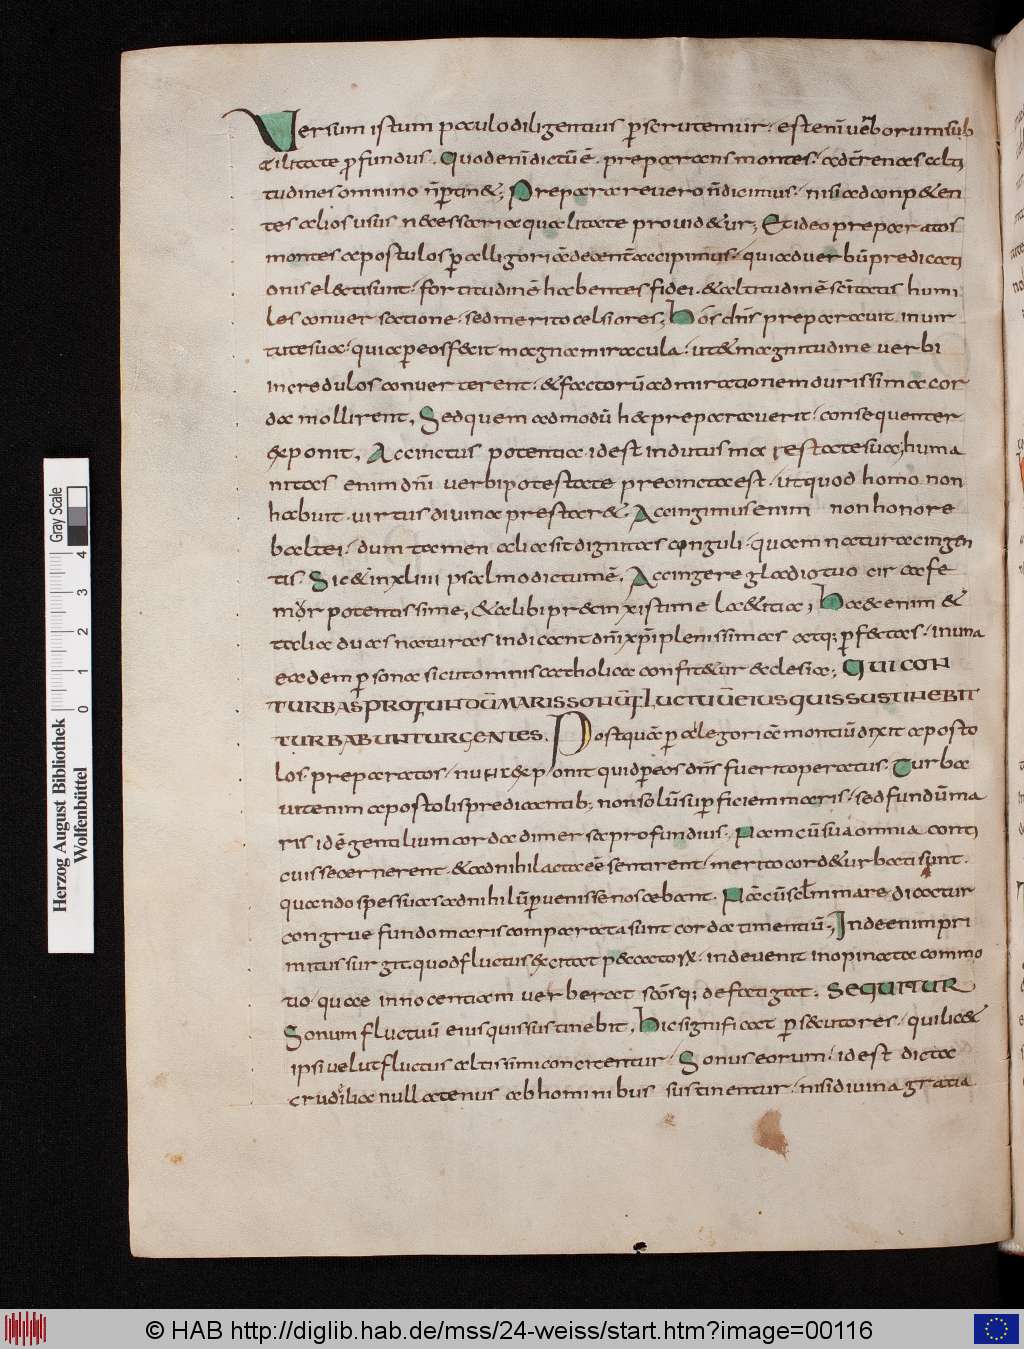 Versum istum paulo diligentius pscrutemur · est eni̅ verborum sub
tilitate pfundus . Quod eni̅ dictu̅ e̅ . preparans montes · ad t̅renas alti
tudines omnino n̅ ptin& ; Preparare vero n̅ dicimus · nisi ad conp&en
tes alios usus n&essaria qualitate provid&ur ; Et ideo preparatos
montes apostolos p allegoria̅ decent̅ accipimus · qui ad verbu̅ predicati
onis el&i sunt · fortitudine̅ habentes fidei · & altitudine̅ sc̅itatis humi
les conversatione · sed merito celsiores ; Hos dn̅s preparavit in vir
tute sua · quia p eos fecit magna miracula · ut & magnitudine verbi
incredulos converterent · & factoru̅ admirationem durissima cor
da mollirent . Sed quem admodu̅ hæ preparaverit · consequenter
exponit . Accinctus potentia · id est indutus maiestate sua ; huma
nitas enim dn̅i verbi potestate precincta est · ut quod homo non
habuit · virtus divina prestar& . Accingimus enim non honore
baltei · dum tamen alia sit dignitas cinguli · quam natura cingen
tis . Sic & in xliiii psalmo dictum e̅ . Accingere gladio tuo circa fe
mur potentissime , & alibi præcinxisti me l&itia ; Hæc enim &
talia duas naturas indicant dn̅i xp̅i plenissimas atq; pf&as · in una
eademq p sona sicut omnis catholica confit&ur &clesia ; QUI CON
TURBAS PROFUNDU̅ MARIS SONU̅ FLUCTUU̅ EIUS QUIS SUSTINEBIT
TURBABUNTUR GENTES . Postqua̅ p allegoria̅ montiu̅ dixit aposto
los · preparatos · nunc exponit quid p eos dn̅s fuerit operatus · Turba
vit enim apostolis predicantib; non solu̅ supficiem maris · sed fundu̅ ma
ris ide̅ gentilium corda dimersa profundius . Nam cu̅ sua omnia conti
cuisse cernerent · & ad nihil acta e̅e̅ sentirent · merito cord& urbati sunt ·
quando spes suas ad nihilu̅ pvenisse noscebant . Nam cu̅ sc̅lm mare dicatur
congrue fundo maris comparata sunt corda timentiu̅ ; Inde enim pri
mitus surgit quod fluctus excitat p&cato&#x72; · inde venit inopinata commo
tio · quae innocentiam verberat sc̅osq; defatigat ; SEQUITUR
Sonum fluctuu̅ eius quis sustinebit . Hic significat ps&utores · qui lic&
ipsi velut fluctus altissimi concitentur · Sonus eorum · id est dicta
crudelia nullatenus ab hominibus sustinentur · nisi divina gratia
Herzog August Bibliothek
Wolfenbüttel
0 1 2 3 4
Gray Scale
© HAB http://diglib.hab.de/mss/24-weiss/start.htm?image=00116